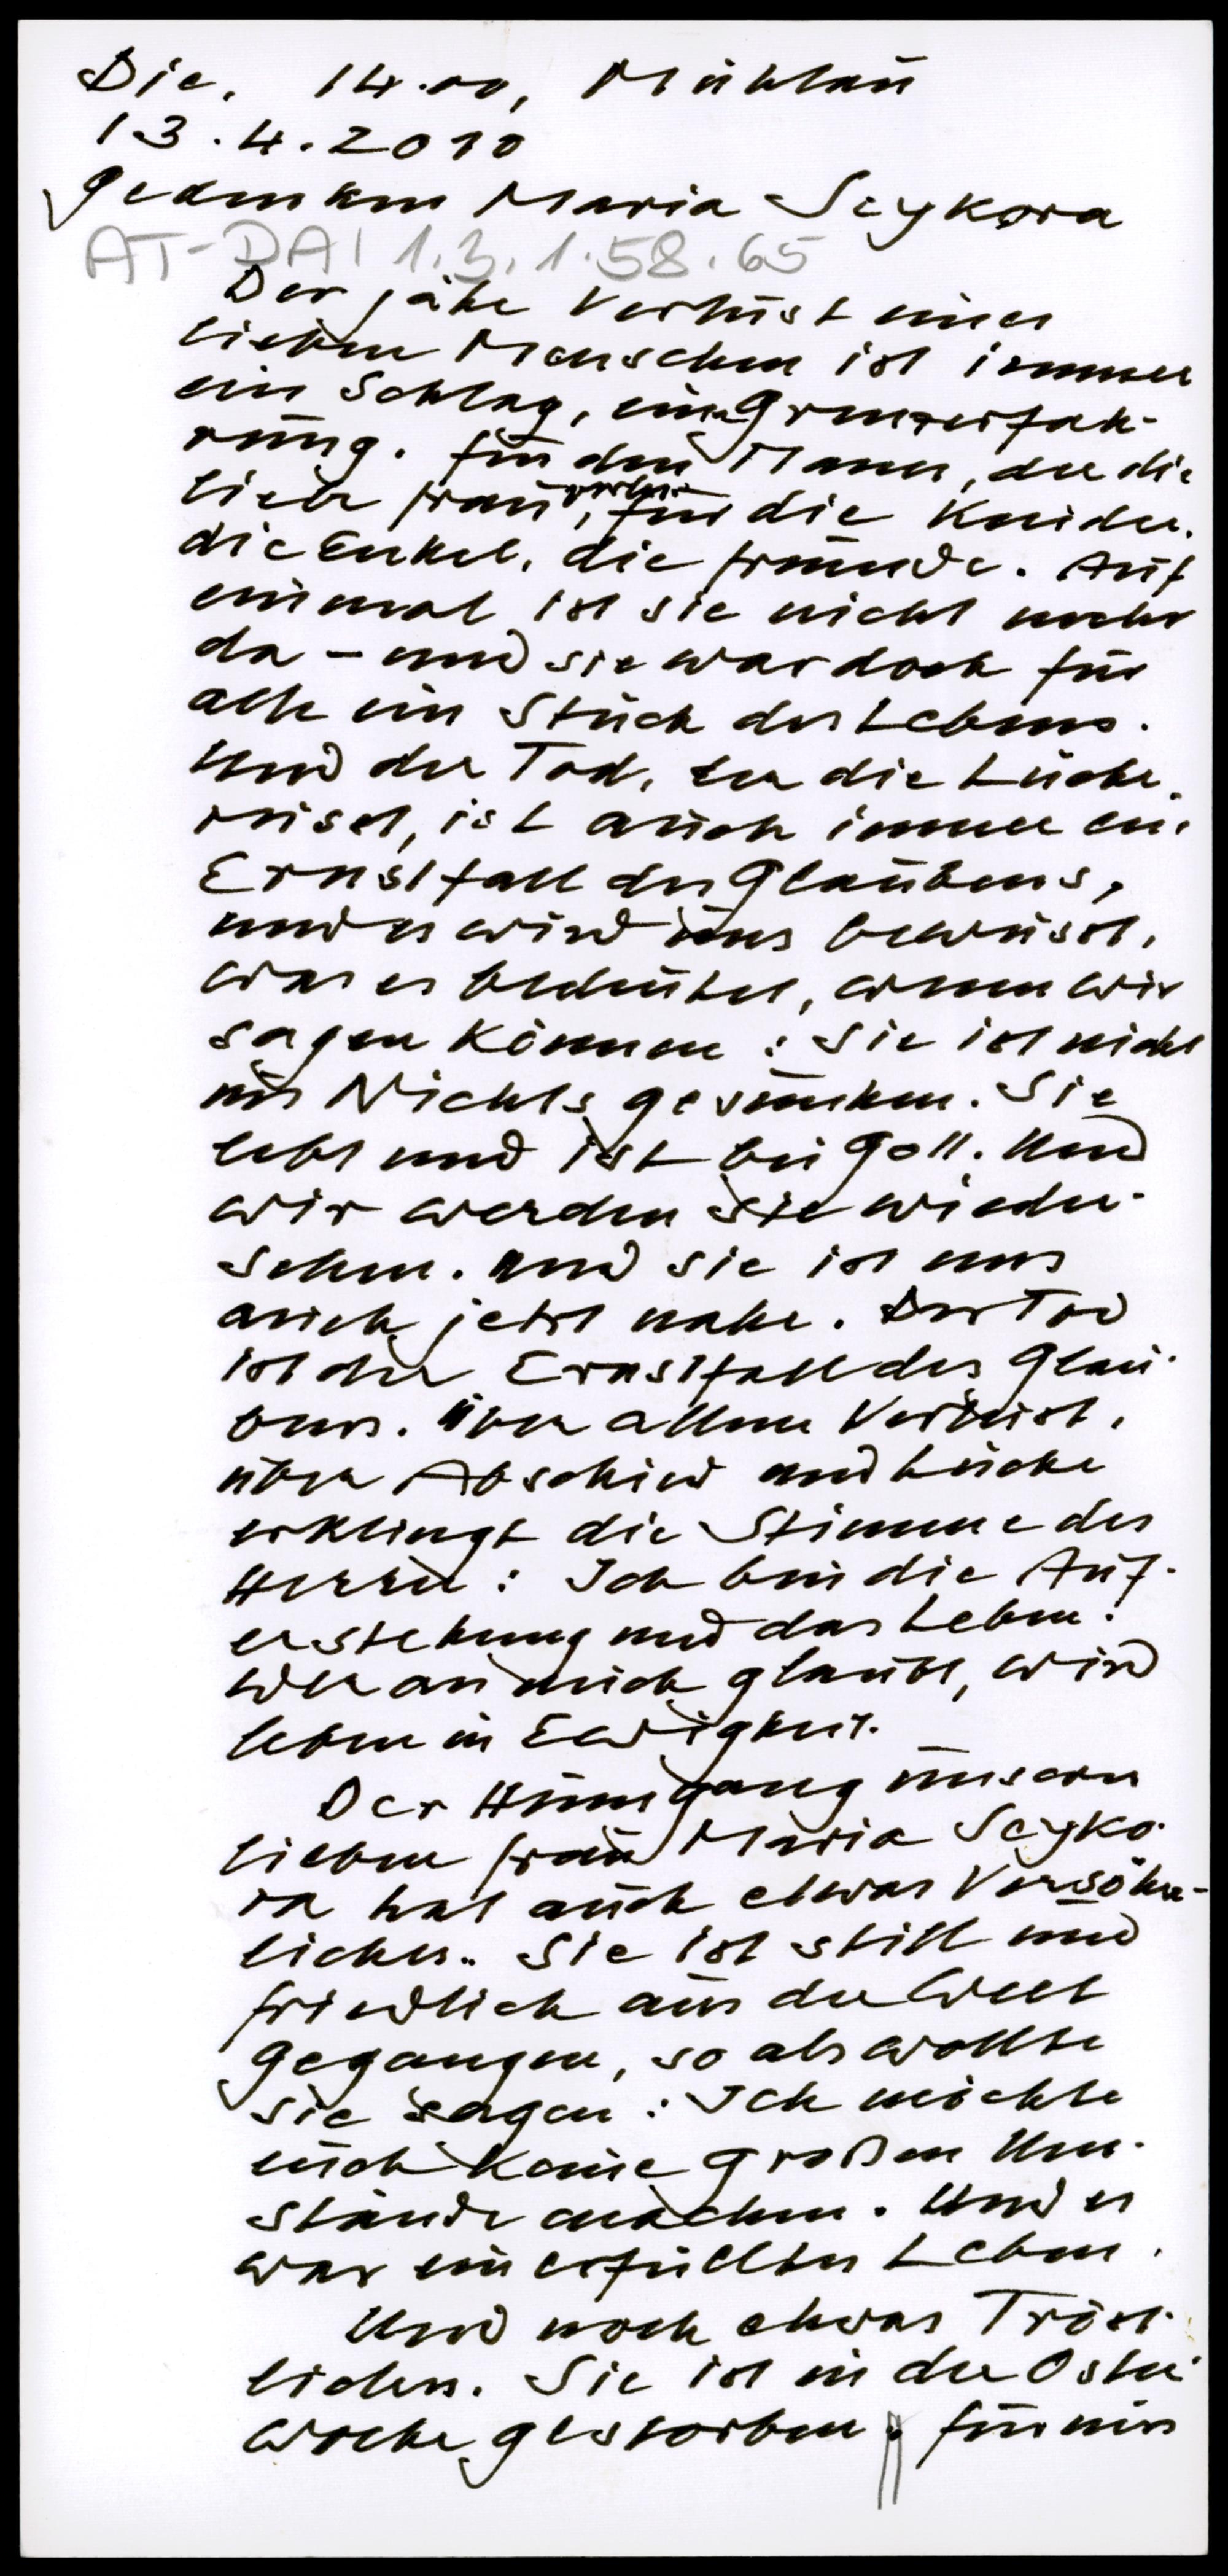 Die, 14.00, Mühlau
13.4.2010
Gedenken Maria Seykora
AT-DAI 1.3.1.58.65
Der jähe Verlust eines
lieben Menschen ist immer
ein Schlag, eine Grenzerfah-
rung. Für den Mann, der die
liebe Frau verlor, für die Kinder.
die Enkel, die Freunde. Auf
einmal ist sie nicht mehr
da – und sie war doch für
alle ein Stück des Lebens.
Und der Tod, der die Lücke
reisst, ist auch immer ein
Ernstfall des Glaubens,
und es wird uns bewusst,
was es bedeutet, wenn wir
sagen können: Sie ist nicht
ins Nichts gesunken. Sie
lebt und ist bei Gott. Und
wir werden sie wieder-
sehen. Und sie ist uns
auch jetzt nahe. Der Tod
ist der Ernstfall des Glau-
bens. Über allem Verlust,
über Abschied und Lücke
erklingt die Stimme des
Herrn: Ich bin die Auf-
erstehung und das Leben.
Wer an mich glaubt, wird
leben in Ewigkeit.
Der Heimgang unserer
lieben Frau Maria Seyko-
ra hat auch etwas Versöhn-
liches. Sie ist still und
friedlich aus der Welt
gegangen, so als wollte
sie sagen: Ich möchte
euch keine großen Um-
stände machen. Und es
war ein erfülltes Leben.
Und noch etwas Tröst-
liches. Sie ist in der Oster-
woche gestorben. Für uns